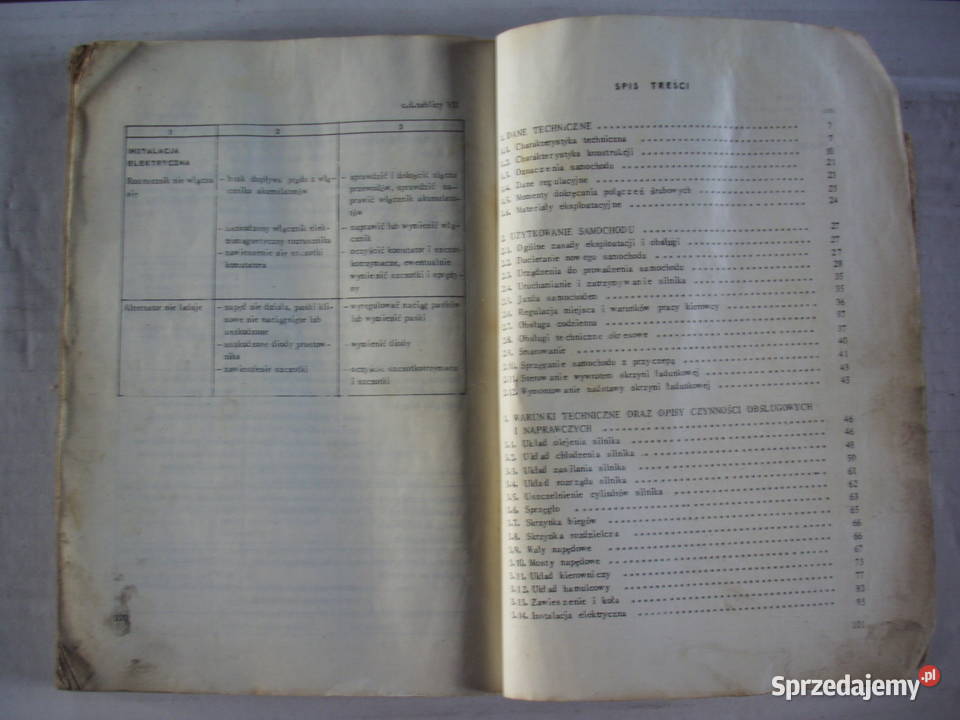 c.d. tablicy VII
1 2 3
INSTALACJA
ELEKTRYCZNA
Rozrusznik nie włącza
się
- brak dopływu prądu z włą-
cznika akumulatorów
- sprawdzić i dokręcić złącza
przewodów, sprawdzić na-
prawić włącznik akumulato-
rów
- uszkodzony włącznik elek-
tromagnetyczny rozrusznika
- naprawić lub wymienić włą-
cznik
- zawieszenie się szczotki
komutatora
- oczyścić komutator i szczot-
kotrzymacze, ewentualnie
wymienić szczotki i spręży-
ny
Alternator nie ładuje
- napęd nie działa, paski kli-
nowe nie naciągnięte lub
uszkodzone
- wyregulować naciąg pasków
lub wymienić paski
- uszkodzone diody prostow-
nika
- wymienić diody
- zawieszenie szczotki
- oczyścić szczotkotrzymacze
i szczotki
SPIS TREŚCI
1. DANE TECHNICZNE 7
1.1. Charakterystyka techniczna 7
1.2. Charakterystyka konstrukcji 10
1.3. Oznaczenia samochodu 21
1.4. Dane regulacyjne 21
1.5. Momenty dokręcania połączeń śrubowych 23
1.6. Materiały eksploatacyjne 24
2. UŻYTKOWANIE SAMOCHODU 27
2.1. Ogólne zasady eksploatacji i obsługi 27
2.2. Docieranie nowego samochodu 27
2.3. Urządzenia do prowadzenia samochodu 28
2.4. Uruchamianie i zatrzymywanie silnika 35
2.5. Jazda samochodem 35
2.6. Regulacja miejsca i warunków pracy kierowcy 36
2.7. Obsługa codzienna 37
2.8. Obsługi techniczne okresowe 37
2.9. Smarowanie 40
2.10. Sprzęganie samochodu z przyczepą 41
2.11. Sterowanie wywrotem skrzyni ładunkowej 43
2.12. Wymontowanie nadstawy skrzyni ładunkowej 45
3. WARUNKI TECHNICZNE ORAZ OPISY CZYNNOŚCI OBSŁUGOWYCH
I NAPRAWCZYCH 46
3.1. Układ olejenia silnika 46
3.2. Układ chłodzenia silnika 48
3.3. Układ zasilania silnika 50
3.4. Układ rozrządu silnika 61
3.5. Uszczelnienie cylindrów silnika 62
3.6. Sprzęgło 63
3.7. Skrzynka biegów 65
3.8. Skrzynka rozdzielcza 66
3.9. Wały napędowe 66
3.10. Mosty napędowe 67
3.11. Układ kierowniczy 73
3.12. Układ hamulcowy 77
3.13. Zawieszenie i koła 93
3.14. Instalacja elektryczna 95
101
Sprzedajemy.pl